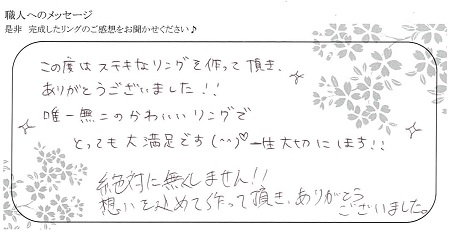 職人へのメッセージ
是非 完成したリングのご感想をお聞かせください♪
この度はステキなリングを作って頂き、
ありがとうございました!!
唯一無二のかわいいリングで
とっても大満足です(^^)♡一生大切にします!!
絶対に無くしません!!
想いを込めて作って頂き、ありがとう
ございました。